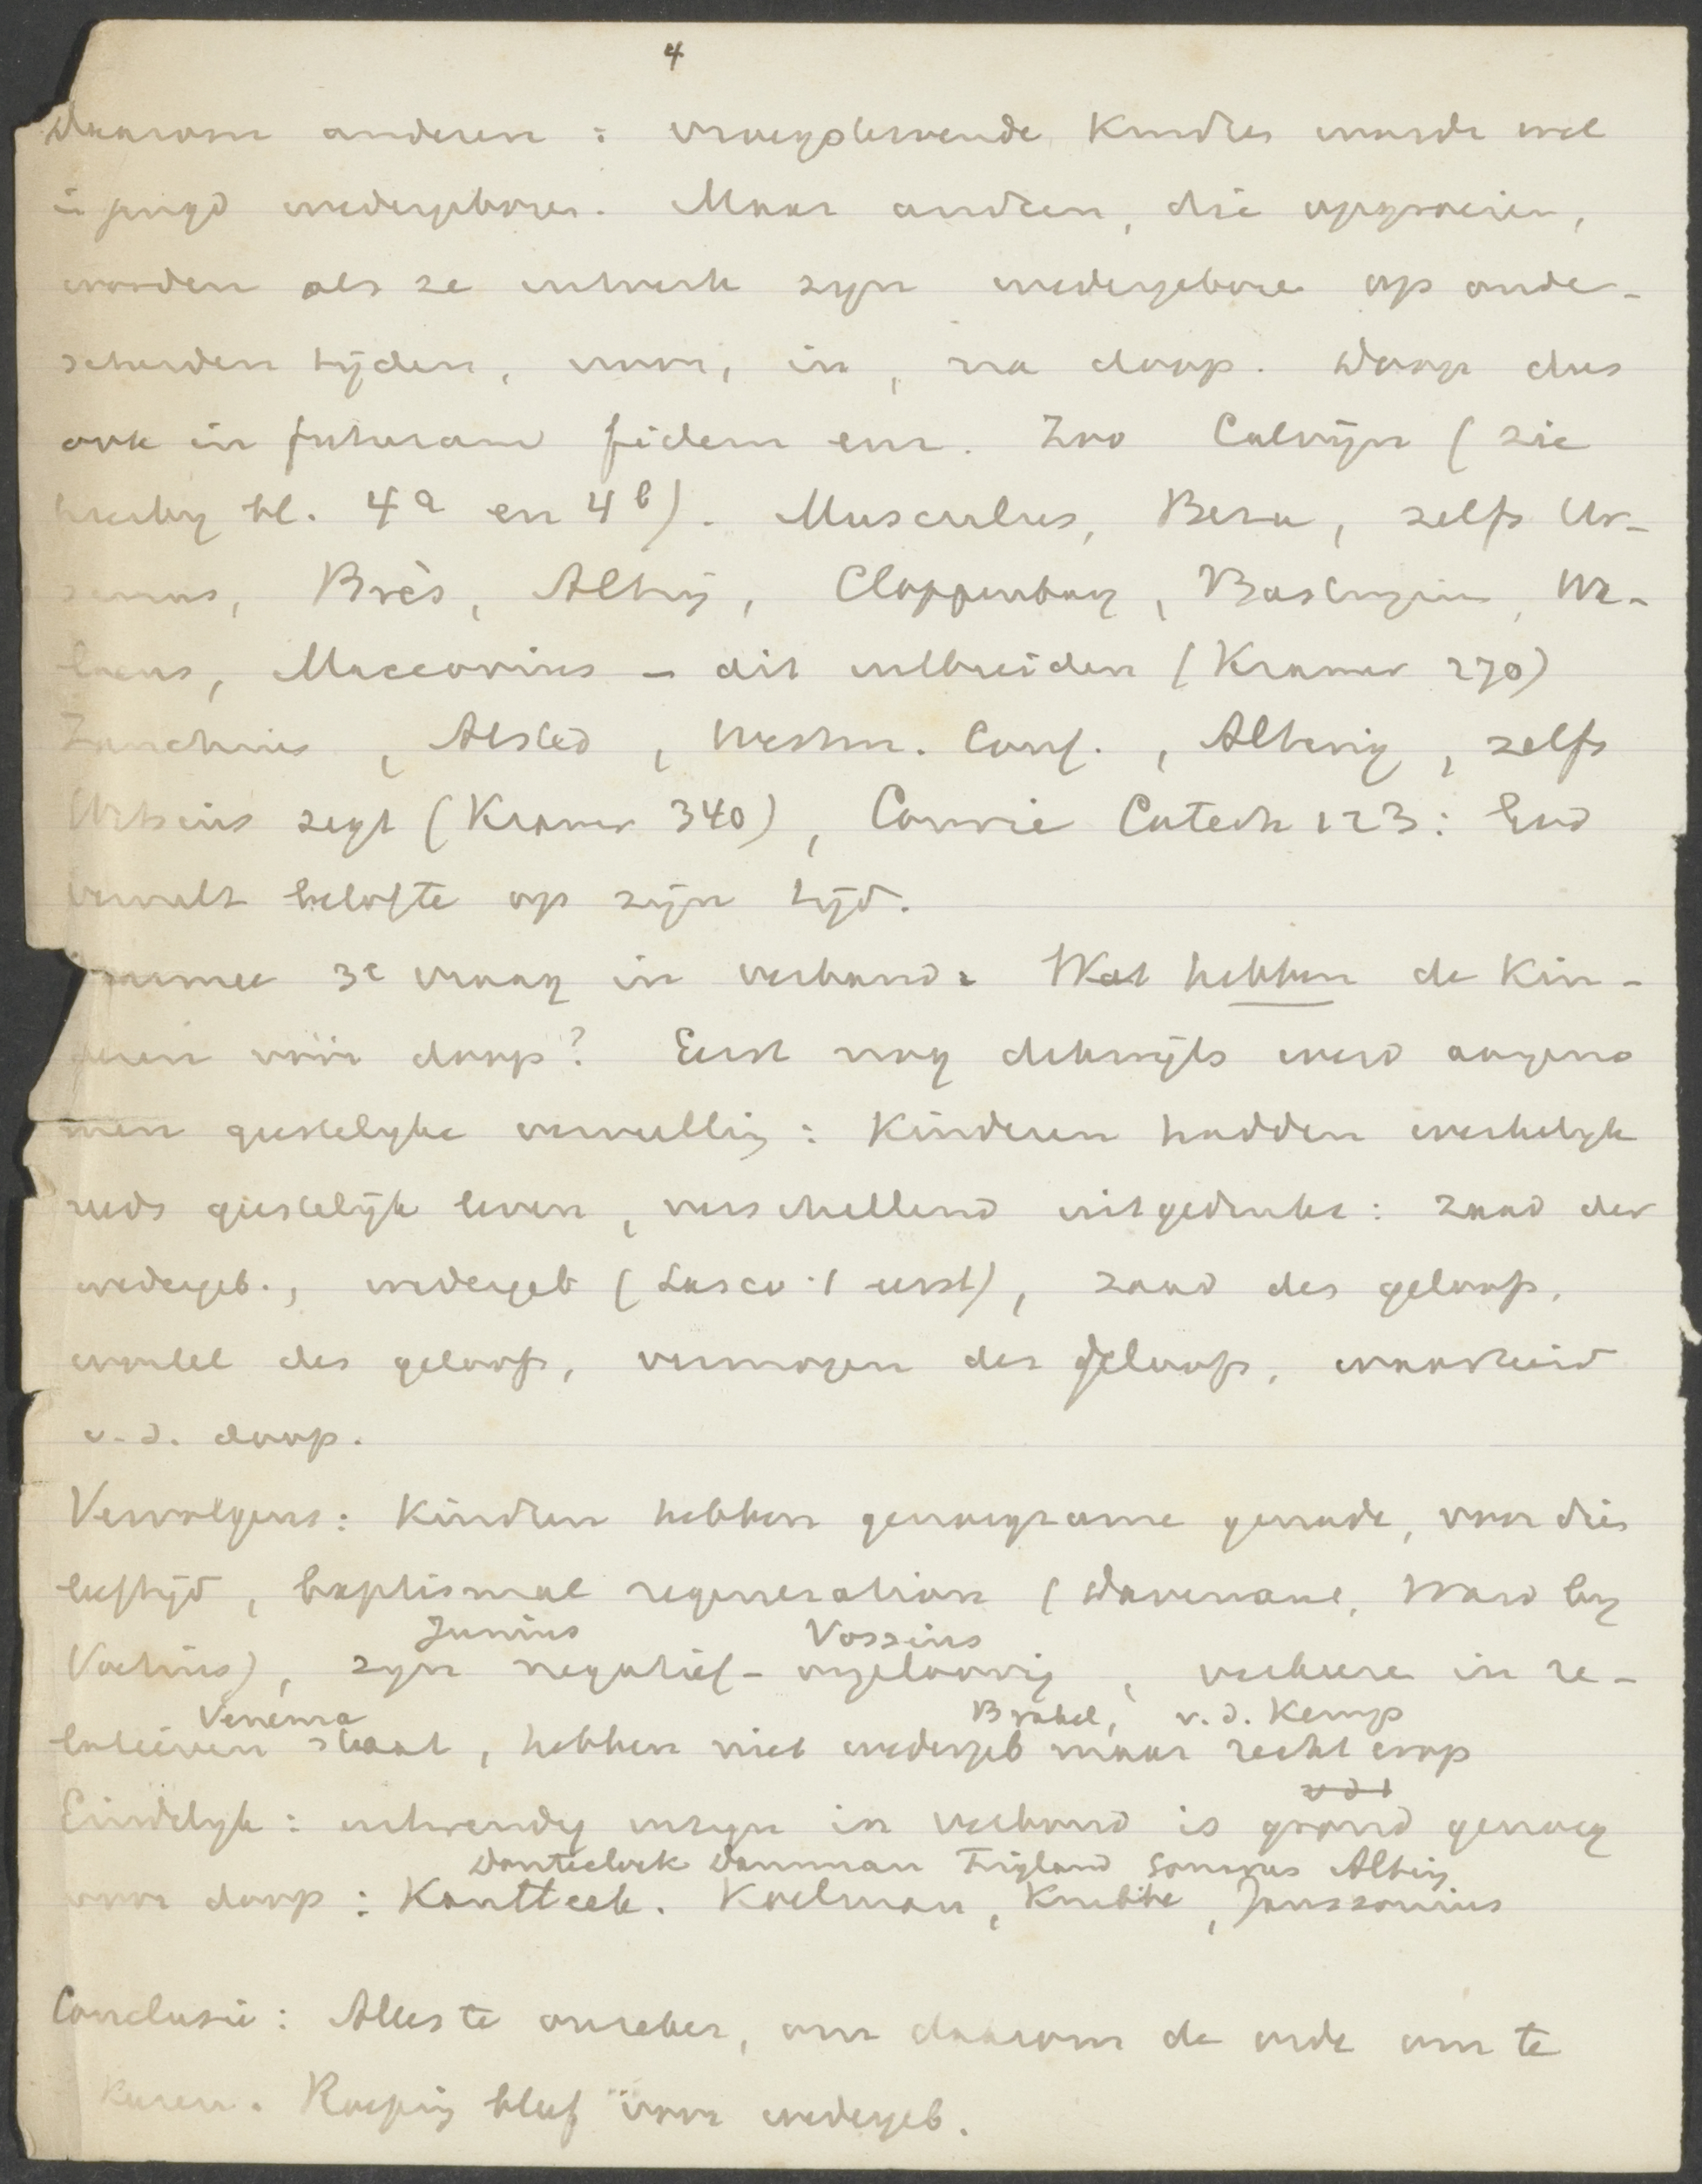 4
Daarom anderen : vroegstervende kindren worde wel
in jeugd wedergeboren. Maar andren, die opgroeien,
worden als ze uitverk zyn wedergebore op onder-
scheiden tijden, voor, in, na doop. Doop dus
ook in futuram fidem enz. Zoo Calvijn (zie
hierby bl. 4a en 4b). Musculus, Beza, zelfs Ur-
sinus, Brès, Alting, Cloppenburg, Wa-
laeus, Maccovius – dit uitbreiden (Kramer 270)
Zanchius, Alsted, Westm. Conf., Alting, zelfs
Witsius zegt (Kramer 340), Comrie Catech 123: God
vervult belofte op zijn tijd.
Daarmee 3e vraag in verband: Wat hebben de kin-
deren vóór doop? Eerst nog dikwijls werd aangeno
men geestelyke vervulling : Kinderen hadden werkelyk
reeds geestelijk leven, verschillend uitgedrukt : zaad der
wedergeb., wedergeb (Lasco 't eerst), zaad des geloofs,
wortel des geloofs, vermogen des geloofs, waarheid
v.d. doop.
Vervolgens : Kindren hebben genoegzame genade, voor dien
leeftijd, baptismal regeneration (Davenant, Ward by
Junius Vossius
Voetius), zyn negatief-ongeloovig, verkeere in re-
Venema Brakel, v.d. Kemp
latieven staat, hebben niet wedergeb maar recht erop
Eindelyk : uitwendig inzyn in verbond is grond genoeg
Donteclock Damman Trigland Alting
voor doop : Kantteek. Koelman, Knibbe, Janssonius
Conclusie : Alles te onzeker, om daarom de orde om te
keren. Roeping bleef voor wedergeb.